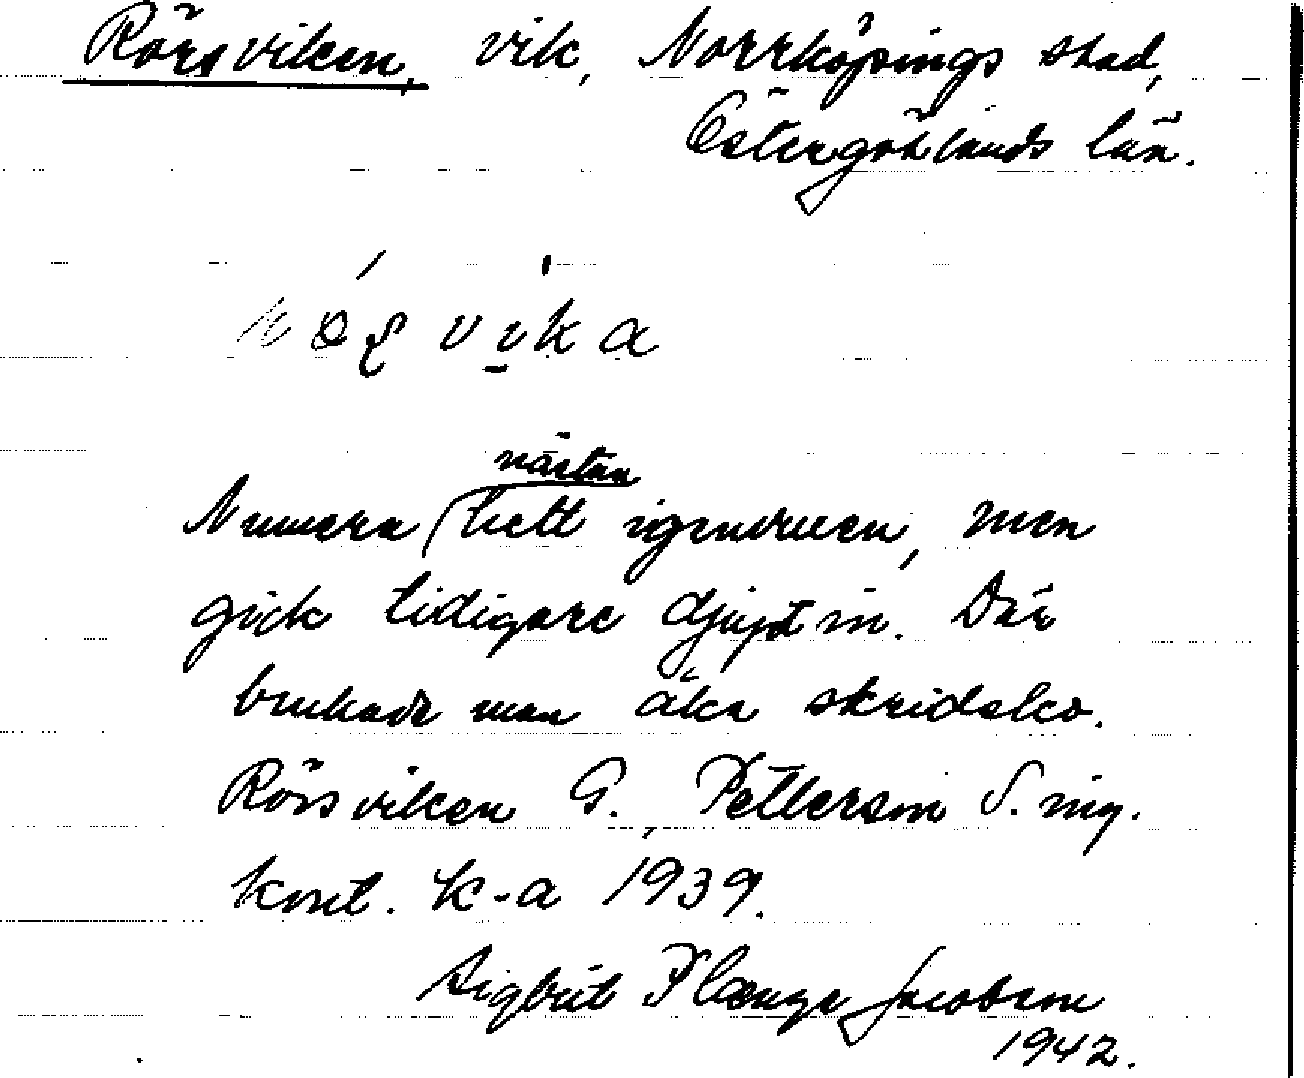 Rörsviken, vik, Norrköpings stad,
Östergötlands län.
nästan
Numera helt igenvuxen, men
gick tidigare djupt in. Där
brukade man åka skridsko.
Rörsviken G. Petterson S. ing.
kont. k-a 1939.
Sigbrit Plænge Jacobson
1942.